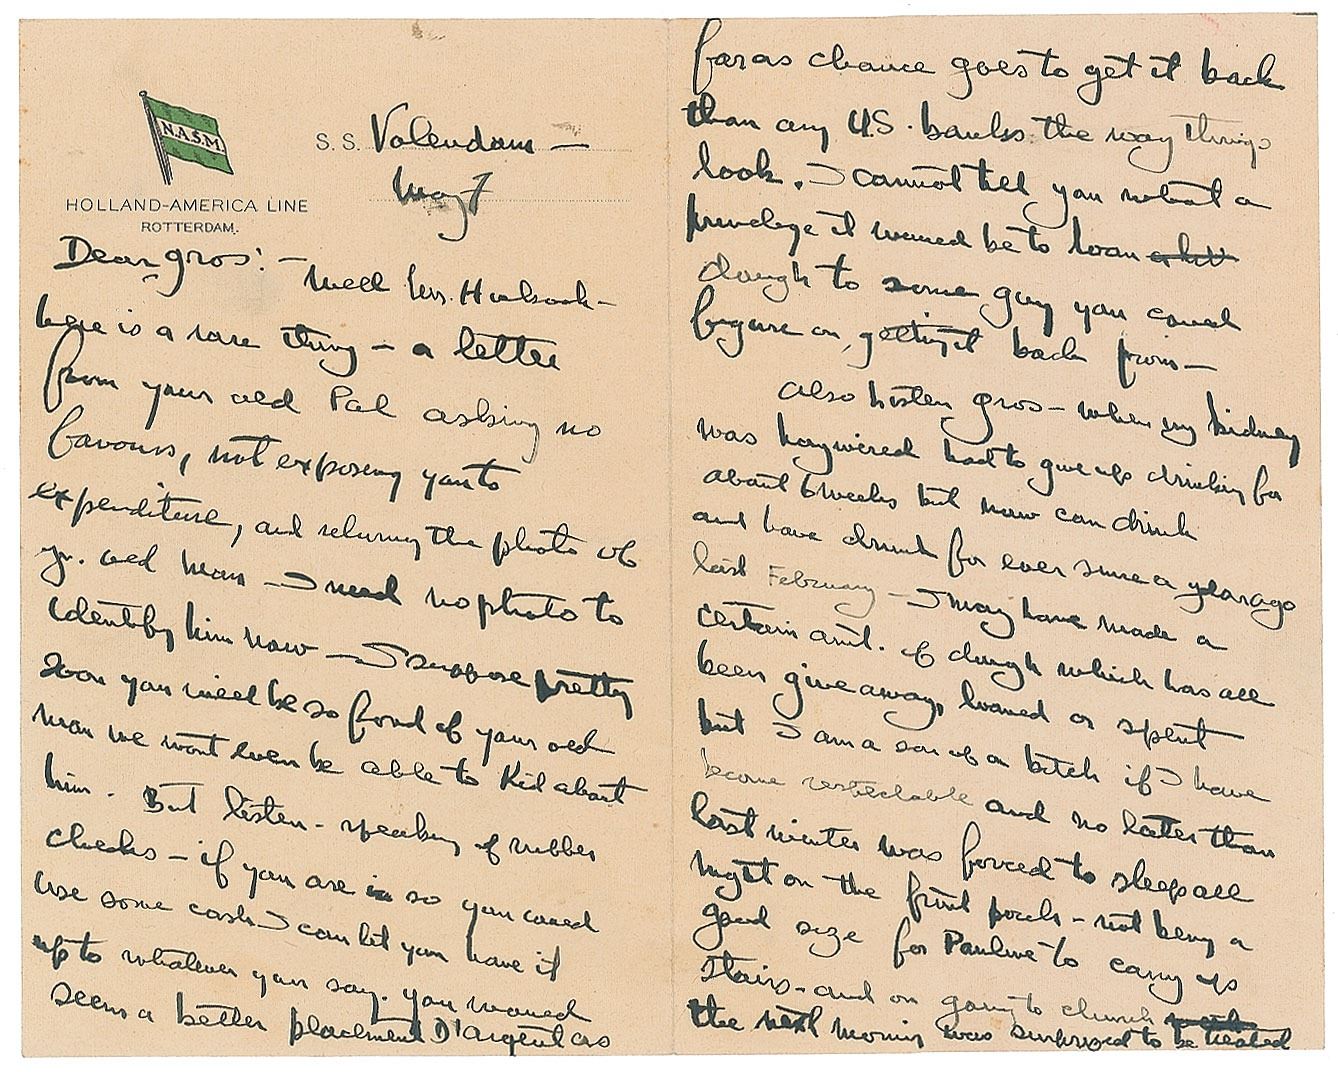 N.A.S.M.
HOLLAND-AMERICA LINE
ROTTERDAM.
S.S. Volendam —
May 7
Dear gros: —
Well Mrs. Hubsack —
here is a rare thing — a letter
from your old Pal asking no
favours, not exposing you to
expenditure, and returning the photo of
yr. old man — I need no photo to
identify him now — I suppose pretty
soon you will be so fond of your old
man we wont even be able to Kid about
him. But listen - speaking of rubber
checks — if you are in so you could
use some cash I can let you have it
up to whatever you say. You would
seem a better placement D'argent as
far as chance goes to get it back
than any U.S. banks the way things
look. I cannot tell you what a
privelege it would be to loan
dough to some guy you could
figure on, getting it back from —
Also listen gros — when my kidney
was haywired had to give up drinking for
about 6 weeks but now can drink
and have drunk for ever since a year ago
last February — I may have made a
certain amt. of dough which has all
been give away, loaned or spent
but I am a son of a bitch if I have
become respectable and no later than
last winter was forced to sleep all
night on the front porch - not being a
good size for Pauline to carry up
stairs - and on going to church
the next morning was surprised to be treated